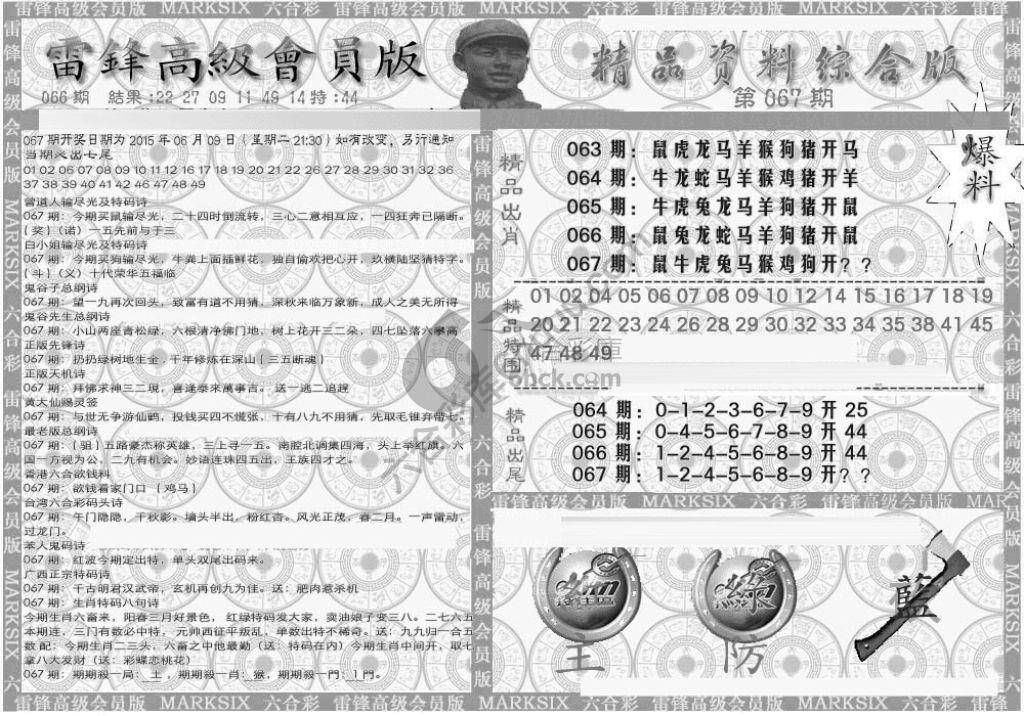 雷锋高级会员版 MARKSIX 六合彩 雷锋高级会员版 MARKSIX 六合彩 雷锋高级会员版 MARKSIX 六合彩
雷鋒高級會員版
精品资料综合版
066期 結果:22 27 09 11 49 14特:44
第067期
067期开奖日期为2015年06月09日(星期二21:30)如有改变,另行通知
当期必出七尾
01 02 04 06 07 08 09 10 11 12 16 17 18 19 20 21 22 26 27 28 29 30 31 32 36
37 38 39 40 41 42 46 47 48 49
曾道人输尽光及特码诗
067期:今期买鼠输尽光,二十四时倒流转,三心二意相互应,一四狂奔已隔断。
{奖}(诺)一五先前与于三
白小姐输尽光及特码诗
067期:今期买狗输尽光,牛粪上面插鲜花,独自偷欢把心开,玖横陆坚猜特字。
{斗}(义)十代荣华五福临
鬼谷子总纲诗
067期:望一九再次回头,致富有道不用猜,深秋来临万象新,成人之美无所得
鬼谷先生总纲诗
067期:小山两座青松绿,六根清净佛门地,树上花开三二朵,四七坠落六攀高
正版先锋诗
067期:扔扔绿树地生金,千年修炼在深山{三五断魂}
正版天机诗
067期:拜佛求神三二現,喜逢泰來萬事吉。送一逃二追趕
黄大仙赐灵签
067期:与世无争游仙鹤,投钱买四不慌张,十有八九不用猜,先取毛锥弃带七。
最老版总纲诗
067期:{驵}五路豪杰称英雄,三上寻一五。南腔北调集四海,头上举红旗。六
国一方视为公,二九有机会。妙语连珠四五出,王族四才之。
香港六合欲钱料
067期:欲钱看家门口 {鸡马}
台湾六合彩码头诗
067期:午门隐隐,千秋影。墙头半出,粉红杏。风光正茂,春二月。一声雷动,
过龙门。
本人鬼码诗
067期:红波今期定出特,单头双尾出码来。
广西正宗特码诗
067期:千古明君汉武帝,玄机再创九为佳。送:肥肉惹杀机
067期:生肖特码八句诗
今期生肖六畜来,阳春三月好景色, 红绿特码发大家,卖油娘子变三八。二七六五
本期连,三门有数必中特, 元帅西征平叛乱,单数出特不稀奇。送:九九归一合五
数 配:今期生肖二三头,六畜之中他最勤(送:特码在内)今期生肖中间开,取七
拿八大发财(送:彩蝶恋桃花)
067期:期期殺一局:土,期期殺一肖:猴,期期殺一門:1門。
精品出肖
063期:鼠虎龙马羊猴狗猪开马
064期:牛龙蛇马羊猴鸡猪开羊
065期:牛虎兔龙马羊狗猪开鼠
066期:鼠兔龙蛇马羊狗猪开鼠
067期:鼠牛虎兔马猴鸡狗开??
爆料
精品特围
01 02 04 05 06 07 08 09 10 12 14 15 16 17 18 19
20 21 22 23 24 26 28 29 30 32 33 34 35 38 41 45
47 48 49
精品出尾
064期:0-1-2-3-6-7-9开25
065期:0-4-5-6-7-8-9开44
066期:1-2-4-5-6-8-9开44
067期:1-2-4-5-6-8-9开??
雷锋高级会员版 MARKSIX 六合彩 雷锋高级会员版
綠
藍
主
防
雷锋高级会员版 MARKSIX 六合彩 雷锋高级会员版 MARKSIX 六合彩 雷锋高级会员版 MARKSIX 六合彩